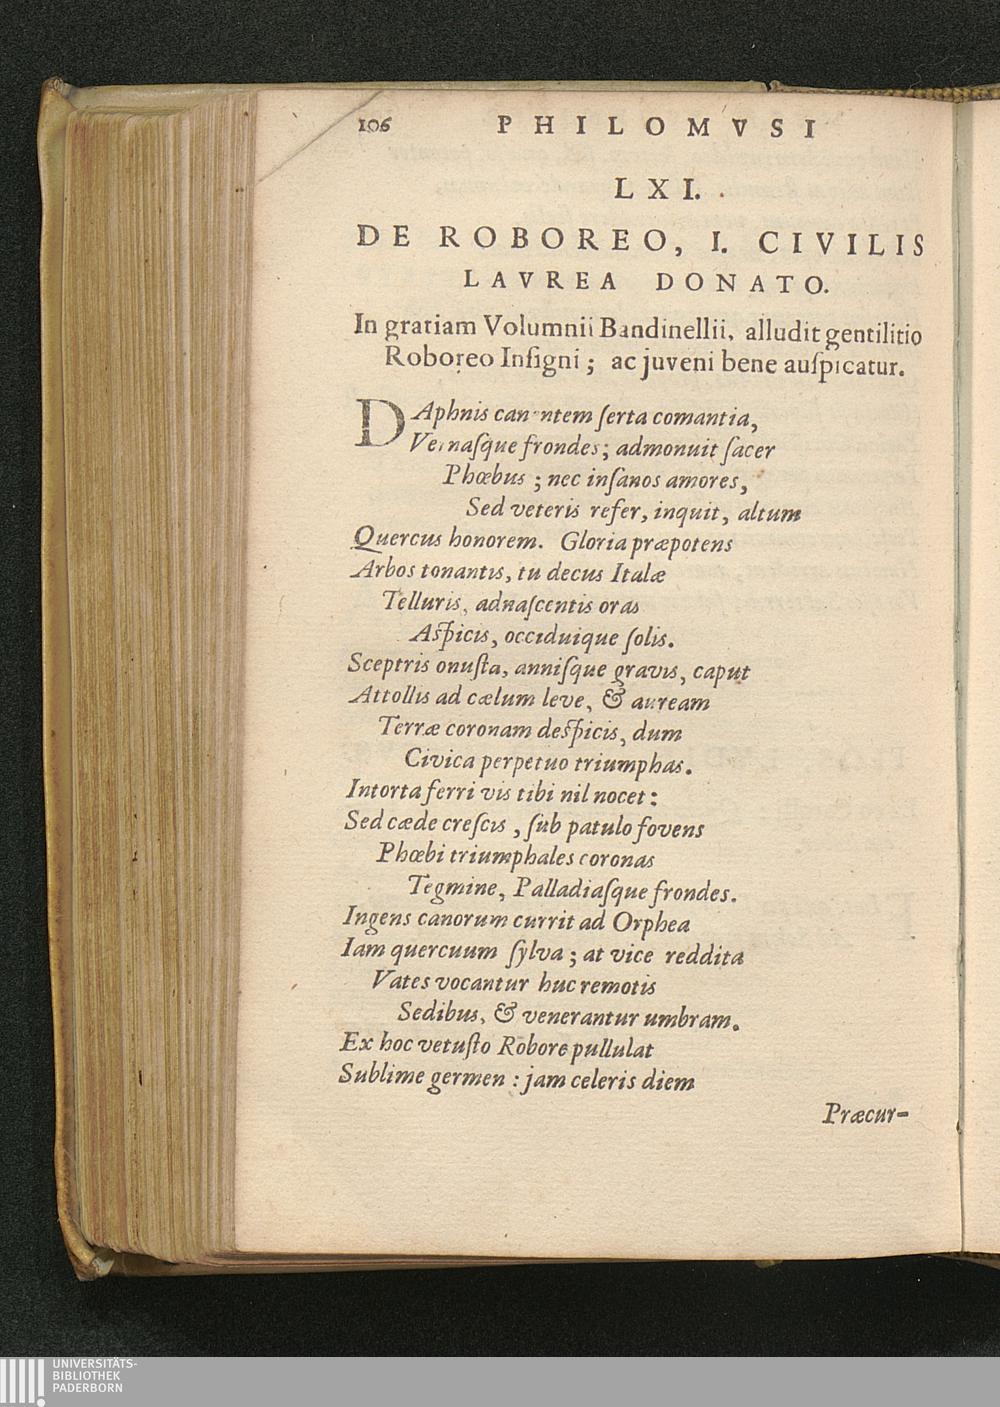 106 PHILOMVSI
LXI.
DE ROBOREO, I. CIVILIS
LAVREA DONATO.
In gratiam Volumnii Bandinellii, alludit gentilitio
Roboreo Insigni; ac juveni bene auſpicatur.
DAphnis canentem ſerta comantia,
Vernaſque frondes; admonuit ſacer
Phœbus; nec inſanos amores,
Sed veteris refer, inquit, altum
Quercus honorem. Gloria præpotens
Arbos tonantis, tu decus Italæ
Telluris, adnaſcentis oras
Aſpicis, occiduique ſolis.
Sceptris onuſta, anniſque gravis, caput
Attollis ad cælum leve, & auream
Terræ coronam deſpicis, dum
Civica perpetuo triumphas.
Intorta ferri vis tibi nil nocet:
Sed cæde creſcis, ſub patulo fovens
Phœbi triumphales coronas
Tegmine, Palladiaſque frondes.
Ingens canorum currit ad Orphea
Iam quercuum ſylva; at vice reddita
Vates vocantur huc remotis
Sedibus, & venerantur umbram.
Ex hoc vetuſto Robore pullulat
Sublime germen: jam celeris diem
Præcur-
UNIVERSITÄTS-
BIBLIOTHEK
PADERBORN